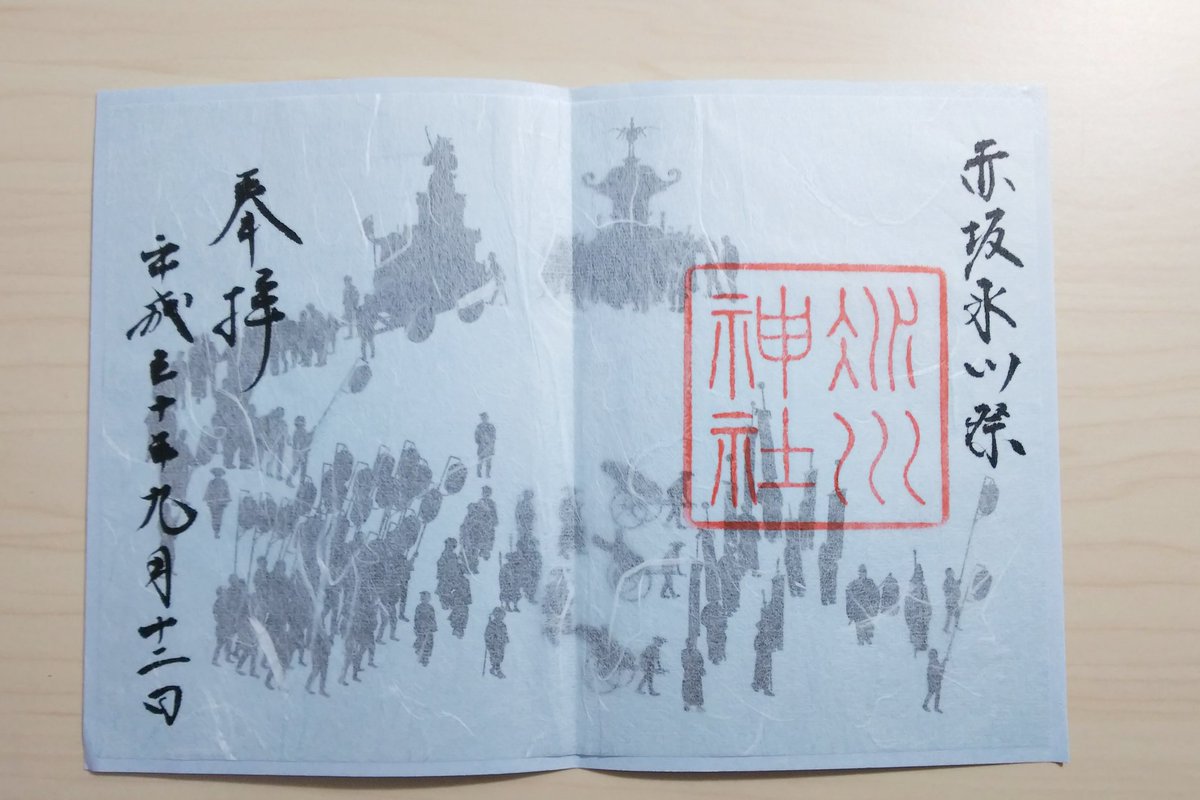 赤坂氷川祭
氷川
神社
奉拝
平成三十年九月十二日